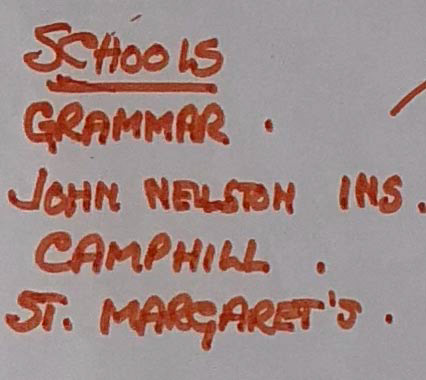 SCHOOLS
GRAMMAR.
JOHN NEILSTON INS.
CAMPHILL.
ST. MARGARET'S.